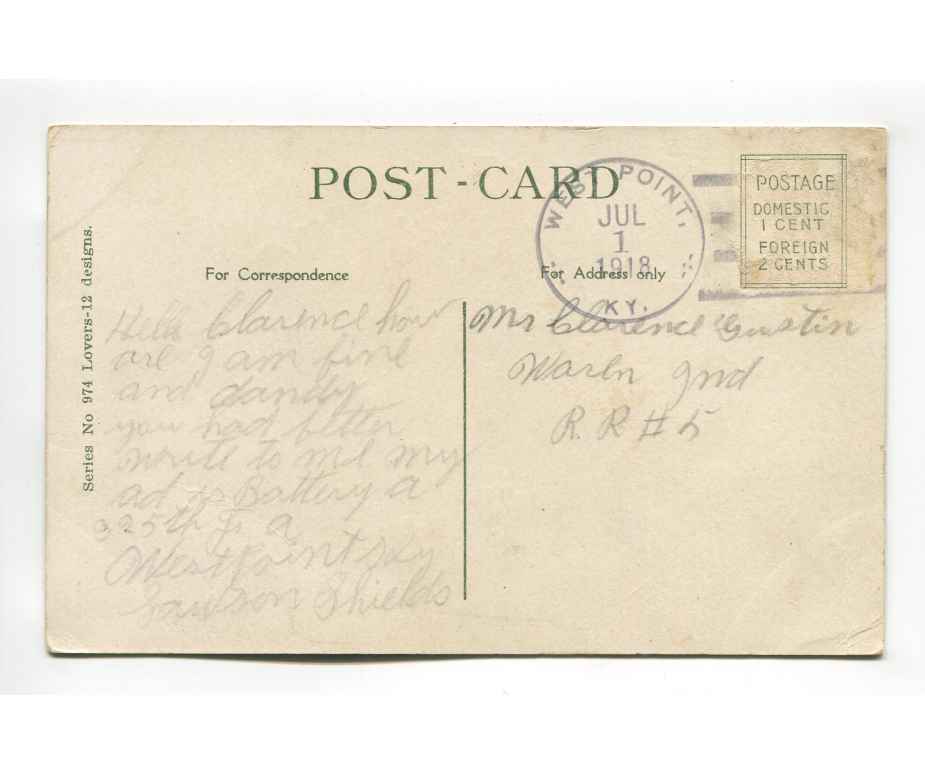 POST-CARD
WEST POINT,
JUL
1
1918
KY.
POSTAGE
DOMESTIC
1 CENT
FOREIGN
2 CENTS
Series No 974 Lovers-12 designs.
For Correspondence
For Address only
Hello Clarence how
are I am fine
and dandy
you had better
write to me my
ad is Battery A
325th F. A
West Point Ky
Shields
Mr Clarence Gustin
Waren Ind
R. R # 5